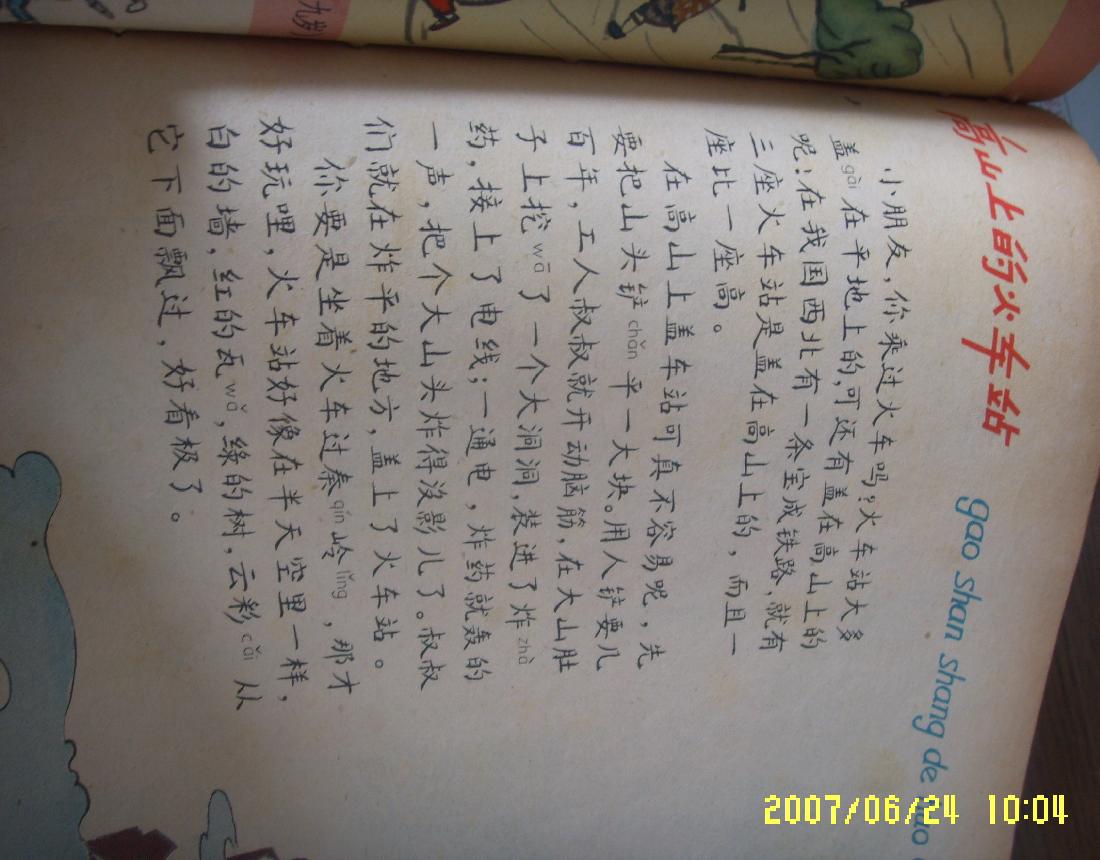 九岁
高山上的火车站
gao shan shang de huo
小朋友，你乘过火车吗？火车站大多
盖gài在平地上的，可还有盖在高山上的
呢！在我国西北有一条宝成铁路，就有
三座火车站是盖在高山上的，而且一
座比一座高。
在高山上盖车站可真不容易呢，先
要把山头铲chǎn平一大块。用人铲要几
百年，工人叔叔就开动脑筋，在大山肚
子上挖wā了一个大洞洞，装进了炸zhà
药，接上了电线；一通电，炸药就轰的
一声，把个大山头炸得没影儿了。叔叔
们就在炸平的地方，盖上了火车站。
你要是坐着火车过秦qín岭lǐng，那才
好玩哩，火车站好像在半天空里一样，
白的墙，红的瓦wǎ，绿的树，云彩cǎi从
它下面飘过，好看极了。
2007/06/24 10:04